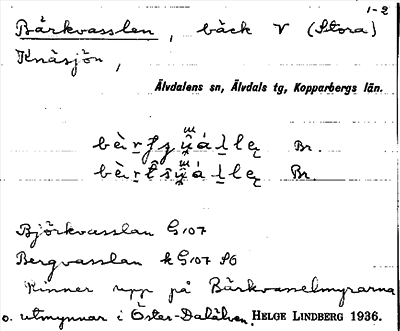 1-2
Bärkvasslen, bäck V (Stora)
Knäsjön,
Älvdalens sn, Älvdals tg, Kopparbergs län.
Br.
Br.
Björkvasslan G107
Bergvasslan k G107 S6
Rinner upp på Bärkvasselmyrarna
o. utmynnar i Öster-Dalälven. HELGE LINDBERG 1936.